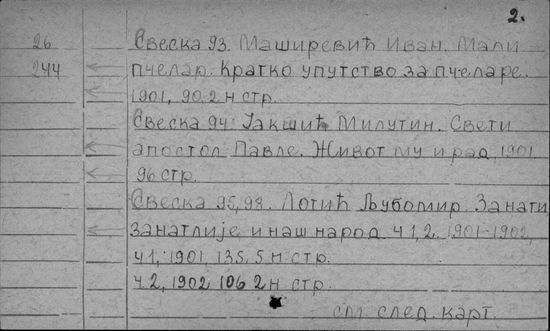 2.
26 Свеска 93. Маширевић Иван. Мали
244 пчелар. Кратко упутство за пчеларе.
1901, 90. 2 н стр.
Свеска 94. Јакшић Милутин. Свети
апостол Павле. Живот му и рад, 1901
96 стр.
Свеска 95, 98. Лотић Љубомир. Занати
занатлије и наш народ ч 1, 2. 1901-1902,
ч 1, 1901, 135. 5 н стр.
ч. 2, 1902 106 2 н стр.
см. след. карт.